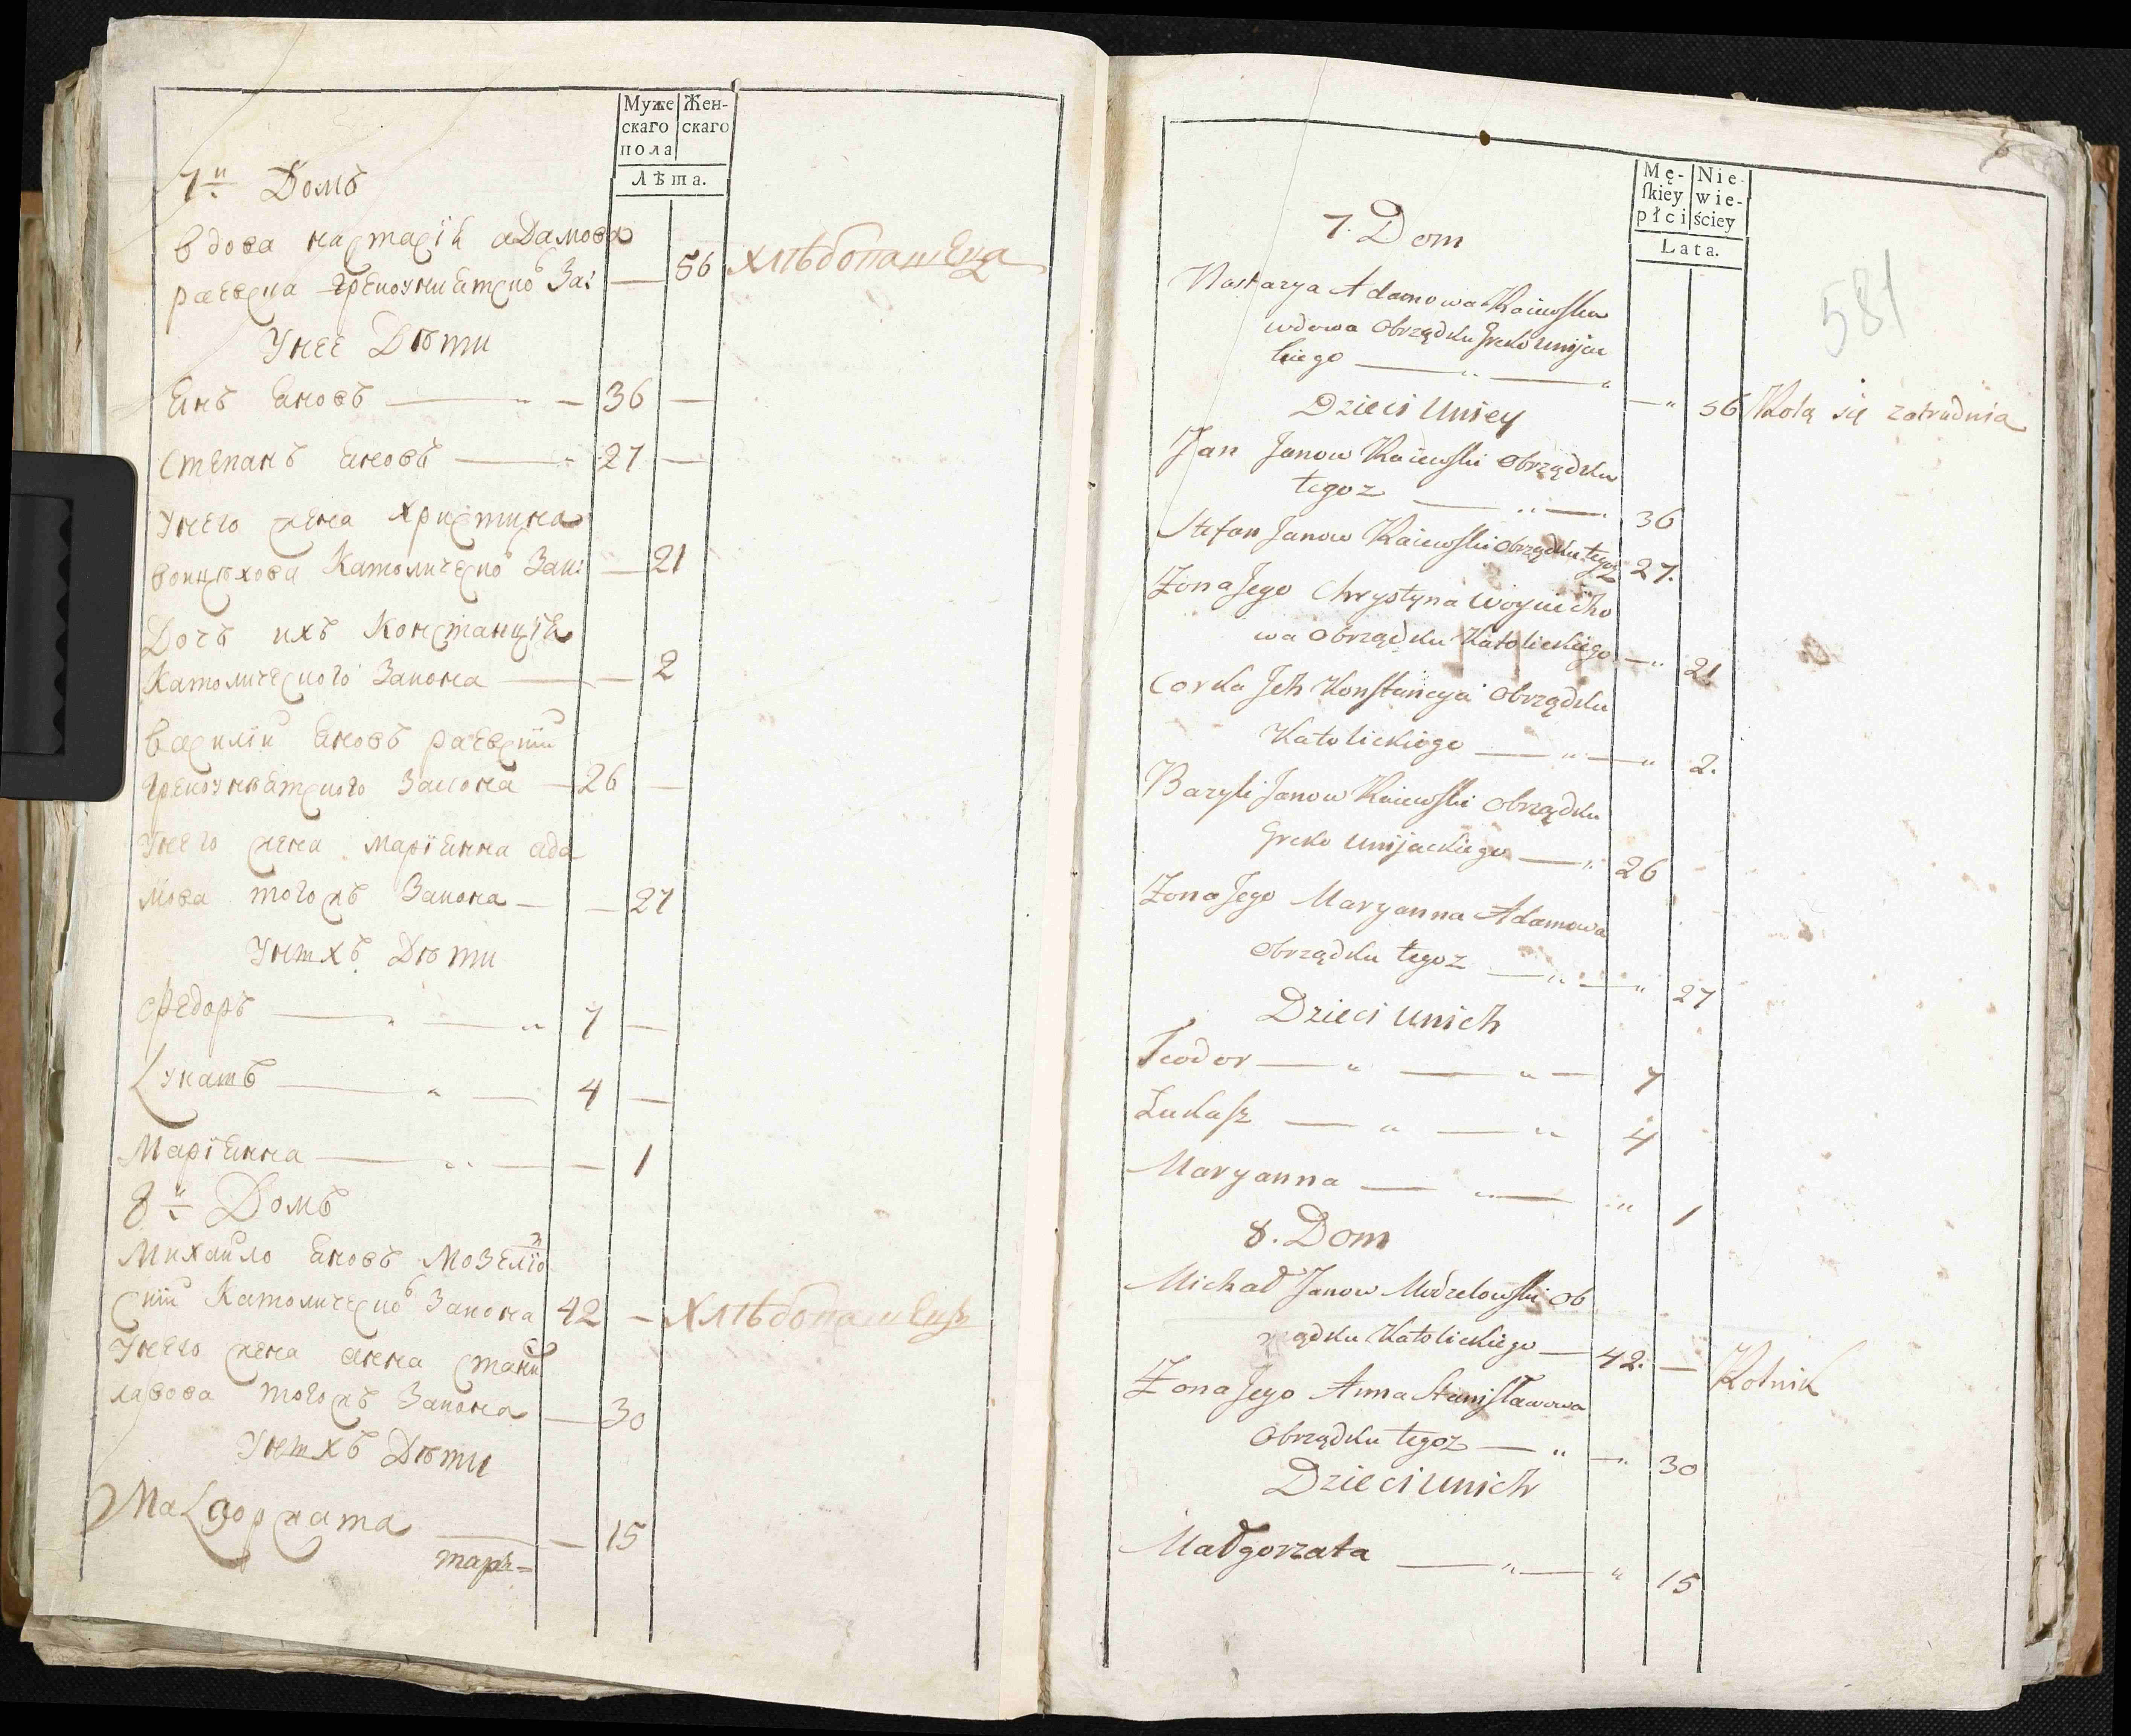 Муже
скаго
пола
Жен-
скаго
Лѣта.
7й Домъ
вдова настасія адамова
раевска грекоуниятско За:
— 56 хлѣбопашеца
Унее Дѣти
Янъ Яновъ — 36 —
степанъ Яновъ — 27 —
Унего жена христина
воицѣхова Католическо Зак: — 21
Дочъ ихъ Констанція
Католического Закона — 2
василій Яновъ раевскій
грекоуниятского Закона — 26 —
Унего жена маріянна ада
мова тогожъ Закона — — 27
Унихъ Дѣти
Федоръ — 7 —
Лукашъ — 4 —
Маріянна — — 1
8й Домъ
Михайло Яновъ Мозелю
скій Католическо Закона 42 — Хлѣбопашецъ
Унего жена анна стани
лавова тогожъ Закона — 30
Унихъ Дѣти
Малгоржата — 15
март=
Mę-
skiey
płci
Nie-
wie-
ściey
Lata.
581
7. Dom
Nastazya Adamowa Raiewska
wdowa Obrządku Greko Unijac
kiego — " — " — " 56 Rolą się zatrudnia
Dzieci Uniey
Jan Janow Raiewski Obrządku
tegoz — " — " 36
Stefan Janow Raiewski Obrządku tegoz 27.
Zona Jego Chrystyna Woyciecho
wa Obrządku Katolickiego — " 21
Corka Jch Konstancya Obrządku
Katolickiego — " — " 2.
Bazyli Janow Raiewski Obrządku
Greko Unijackiego — " 26
Zona Jego Maryanna Adamowa
Obrządku tegoz — " — " 27
Dzieci Unich
Teodor — " — " — 7
Łukasz — " — " 4
Maryanna — " — " 1
8. Dom
Michał Janow Modzelowski Ob
rządku Katolickiego — 42. — Rolnik
Zona Jego Anna Stanisławowa
Obrządku tegoz — " — " 30
Dzieci Unich
Małgorzata — " — " 15